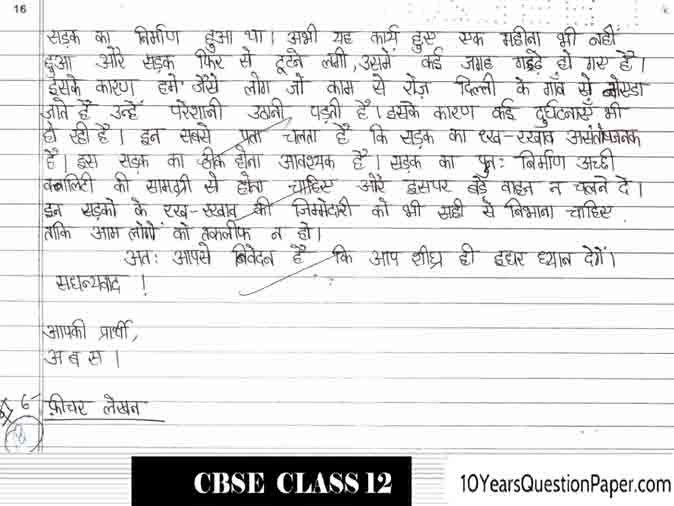 16
सड़क का निर्माण हुआ था। अभी यह कार्य हुए एक महीना भी नहीं
हुआ और सड़क फिर से टूटने लगी, उसमें कई जगह गड्ढे हो गए हैं।
इसके कारण हमे जैसे लोग जो काम से रोज़ दिल्ली के गाँव से नोएडा
जाते हैं उन्हें परेशानी उठानी पड़ती है। इसके कारण कई दुर्घटनाएँ भी
हो रही हैं। इन सबसे पता चलता है कि सड़क का रख-रखाव असंतोषजनक
है। इस सड़क का ठीक होना आवश्यक है। सड़क का पुनः निर्माण अच्छी
क्वालिटी की सामग्री से होना चाहिए और इसपर बड़े वाहन न चलने दे।
इन सड़कों के रख-रखाव की जिमेदारी को भी सही से निभाना चाहिए
ताकि आम लोगों को तकलीफ न हो।
अतः आपसे निवेदन है कि आप शीघ्र ही इधर ध्यान देगें।
सधन्यवाद !
आपकी प्रार्थी,
अ ब स।
6- फ़ीचर लेखन
CBSE CLASS 12
10YearsQuestionPaper.com